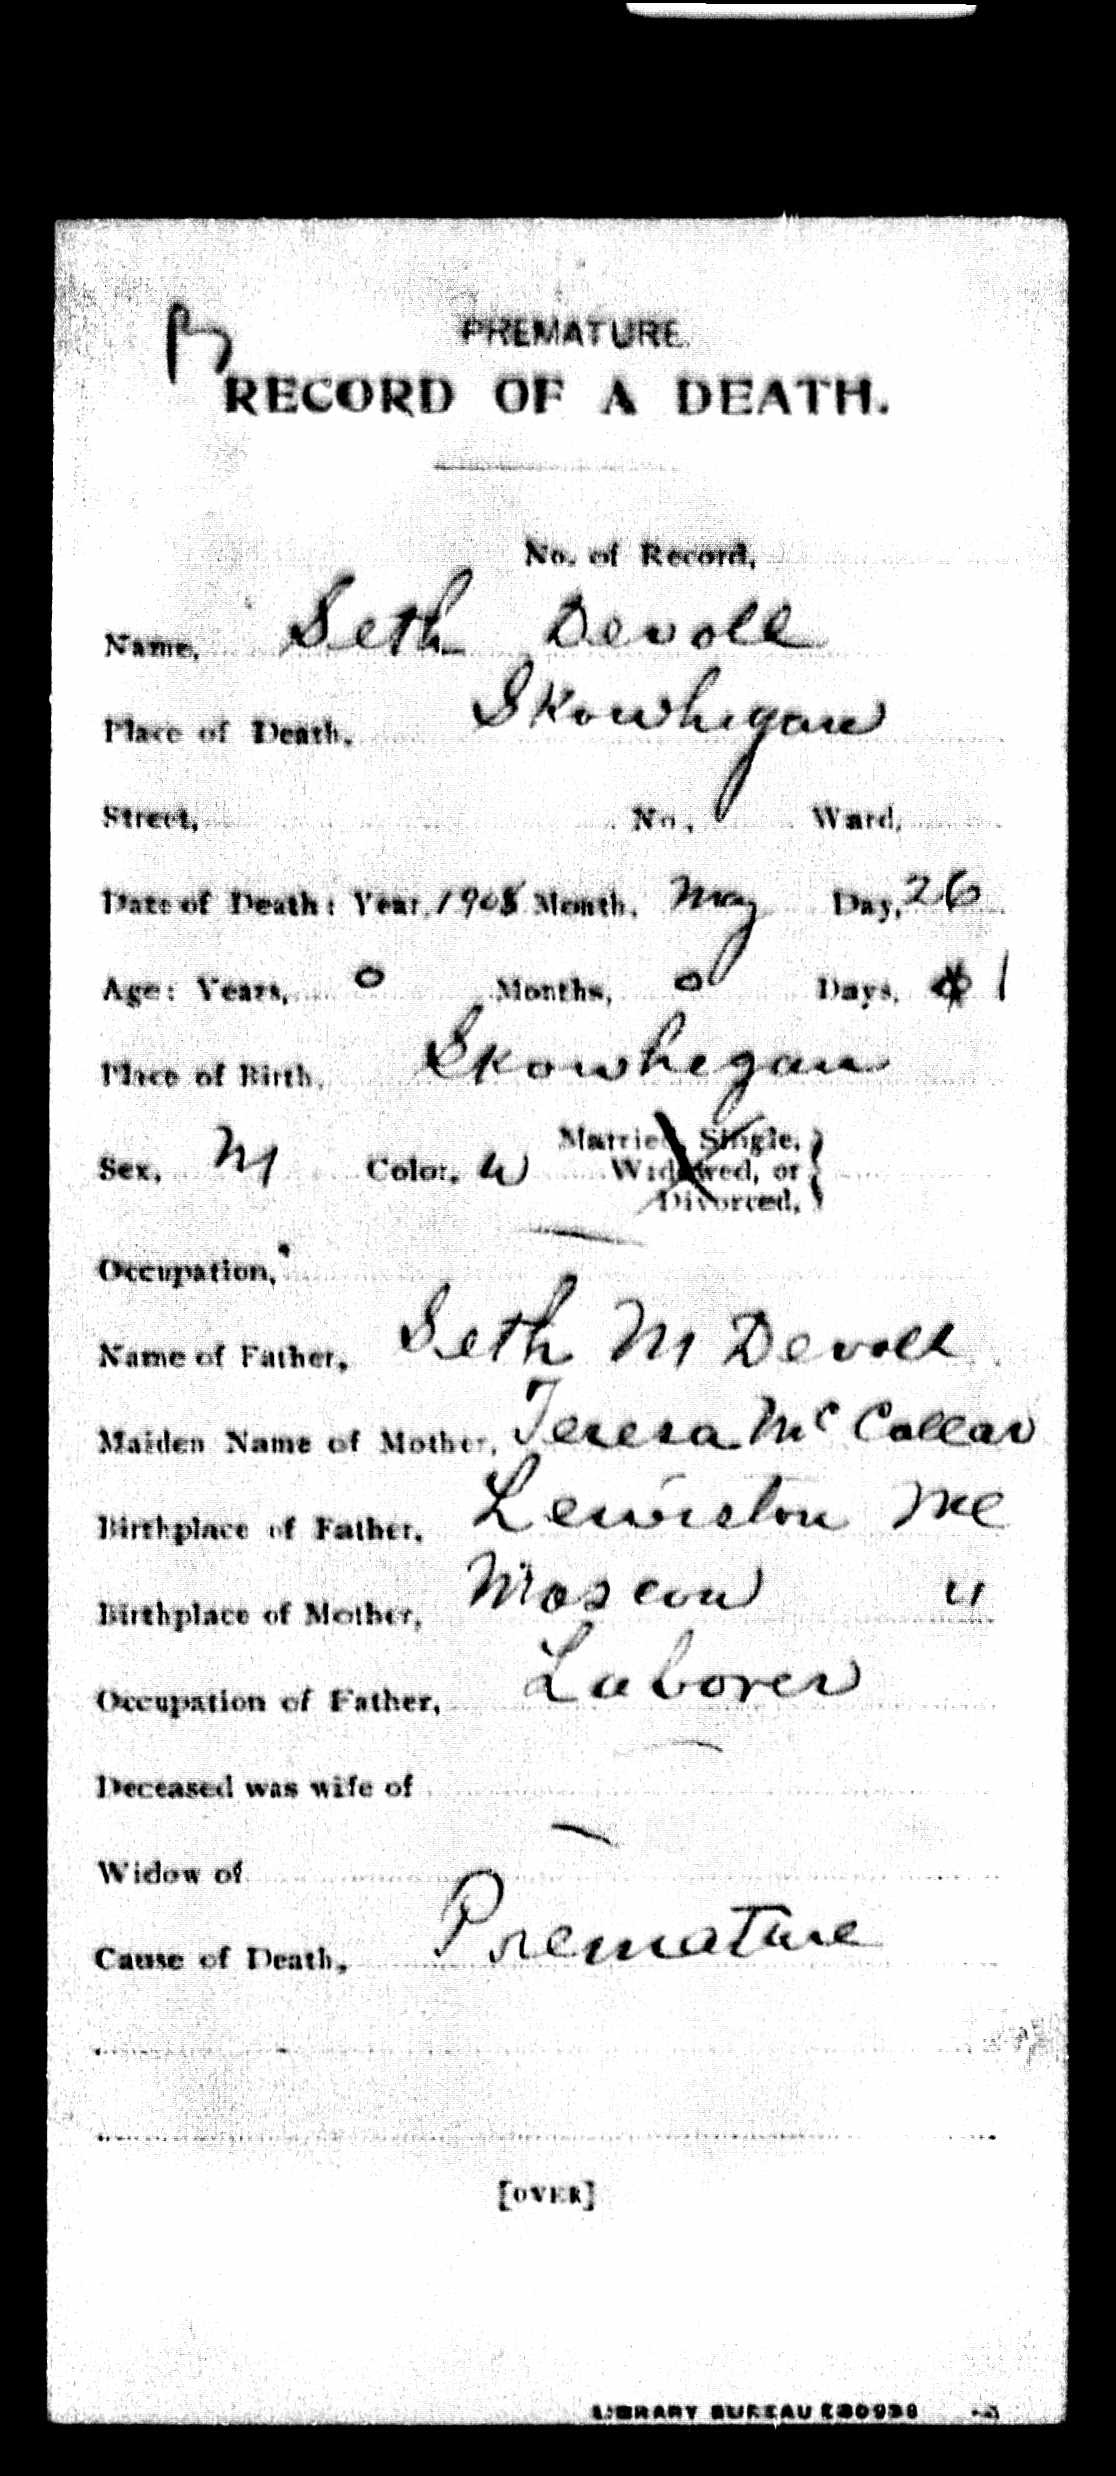 PREMATURE.
RECORD OF A DEATH.
No. of Record,
Name, Seth Devoll
Place of Death, Skowhegan
Street, No., Ward,
Date of Death: Year, 1908 Month, May Day, 26
Age: Years, 0 Months, 0 Days, 1
Place of Birth, Skowhegan
Sex, M Color, W Married, Single, Widowed, or Divorced,
Occupation,
Name of Father, Seth M Devoll
Maiden Name of Mother, Teresa Mc Collar
Birthplace of Father, Lewiston Me
Birthplace of Mother, Moscow "
Occupation of Father, Laborer
Deceased was wife of
Widow of
Cause of Death, Premature
[OVER]
LIBRARY BUREAU